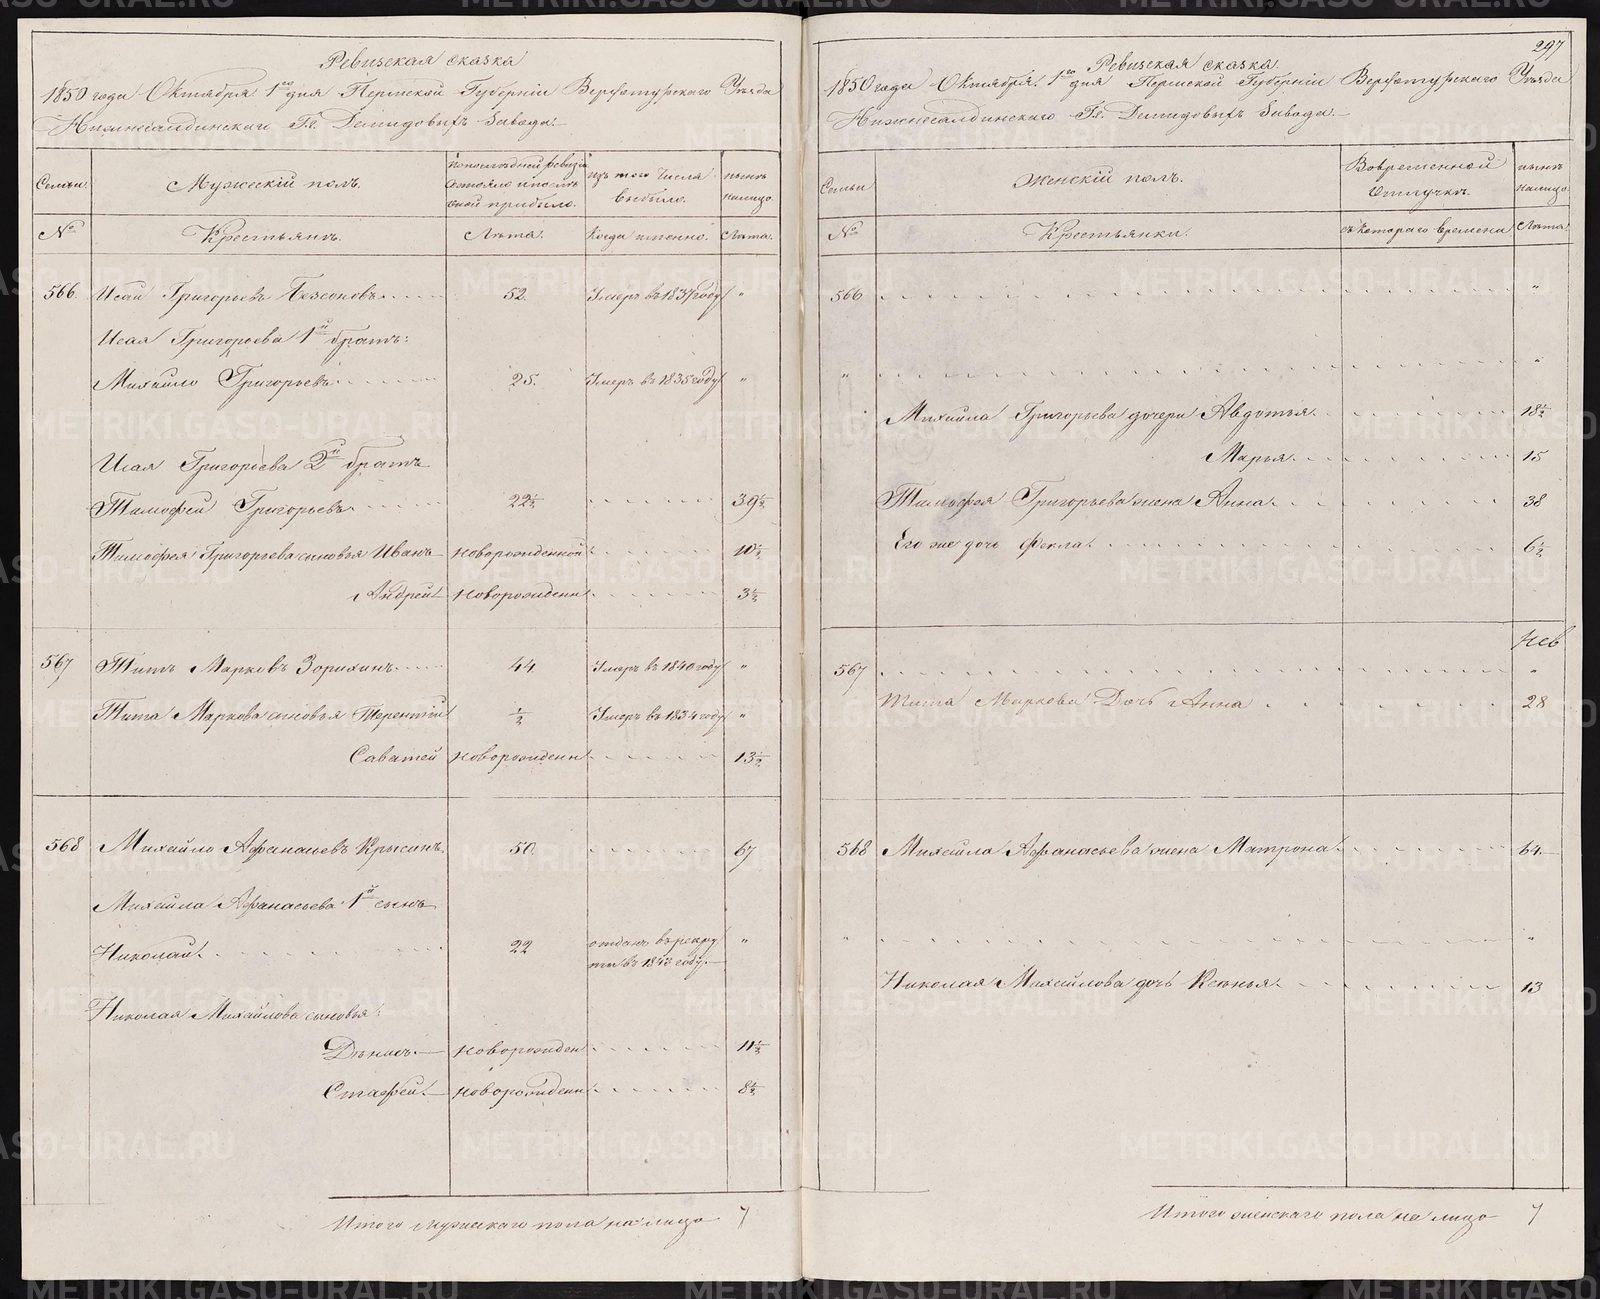 Ревизская сказка
1850 года Октября 1го дня Пермской Губернии Верхотурскаго Уѣзда
Нижнесалдинскаго Гг. Демидовыхъ Завода.
Семьи.
Мужескій полъ.
По последней ревизіи состояло и после оной прибыло.
изъ того числа выбыло.
нынѣ налицо.
№
Крестьянъ.
Лѣта.
Когда именно.
Лѣта.
566. Исай Григорьевъ Аксеновъ 52. Умеръ въ 1837 году "
Исая Григорьева 1й братъ:
Михайло Григорьевъ 25. Умеръ въ 1835 году "
Исая Григорьева 2й братъ
Тимофей Григорьевъ 22½ 39½
Тимофея Григорьева сыновья Иванъ новорожденной 10½
Андрей новорожденн 3½
567 Титъ Марковъ Зорихинъ 44. Умеръ въ 1840 году "
Тита Маркова сыновья Терентий ½ Умеръ въ 1834 году "
Саватей новорожденн 13½
568 Михайло Афанасьевъ Крысинъ 50. 67
Михайла Афанасьева 1й сынъ
Николай 22 отданъ въ рекру
ты въ 1843 году "
Николая Михайлова сыновья:
Денисъ новорожден 11½
Стафей новорожденн 8½
Итого мужескаго пола на лицо 7
297
Ревизская сказка.
1850 года Октября 1го дня Пермской Губерніи Верхотурскаго Уѣзда
Нижнесалдинскаго Гг. Демидовыхъ Завода.
Семьи
Женскій полъ.
Во временной отлучкѣ.
нынѣ налицо.
№
Крестьянки.
съ котораго времени
Лѣта
566 "
" "
Михайла Григорьева дочери Авдотья 18½
Марья 15
Тимофея Григорьева жена Анна 38
Его же дочь Фекла 6½
567 "
Тита Маркова Дочь Анна 28
568 Михайла Афанасьева жена Матрона 64
" "
Николая Михайлова дочь Ксенья 13
Итого женскаго пола на лицо 7
METRIKI.GASO-URAL.RU